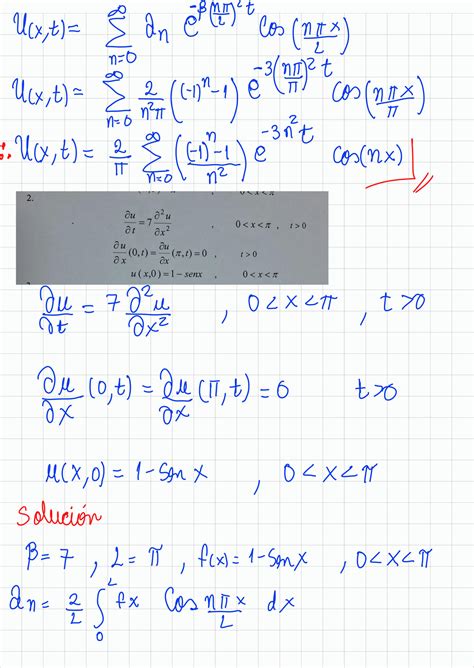 U(x,t) = ∞∑n=0 an e^-β(nπ/L)^2 t Cos(nπx/L)
U(x,t) = ∞∑n=0 2/n²π ((-1)^n - 1) e^-3(nπ/π)^2 t Cos(nπx/π)
U(x,t) = 2/π ∞∑n=0 ((-1)^n - 1/n²) e^-3n²t cos(nx)
2.
∂u/∂t = 7 ∂²u/∂x² , 0<x<π , t>0
∂u/∂x (0,t) = ∂u/∂x (π,t) = 0 , t>0
u(x,0) = 1 - senx , 0<x<π
∂u/∂t = 7 ∂²u/∂x² , 0<x<π , t>0
∂u/∂x (0,t) = ∂u/∂x (π,t) = 0 t>0
u(x,0) = 1 - Sen x , 0<x<π
Solución
β = 7 , L = π , f(x) = 1 - Senx , 0<x<π
an = 2/L ∫0^L fx Cos nπx/L dx